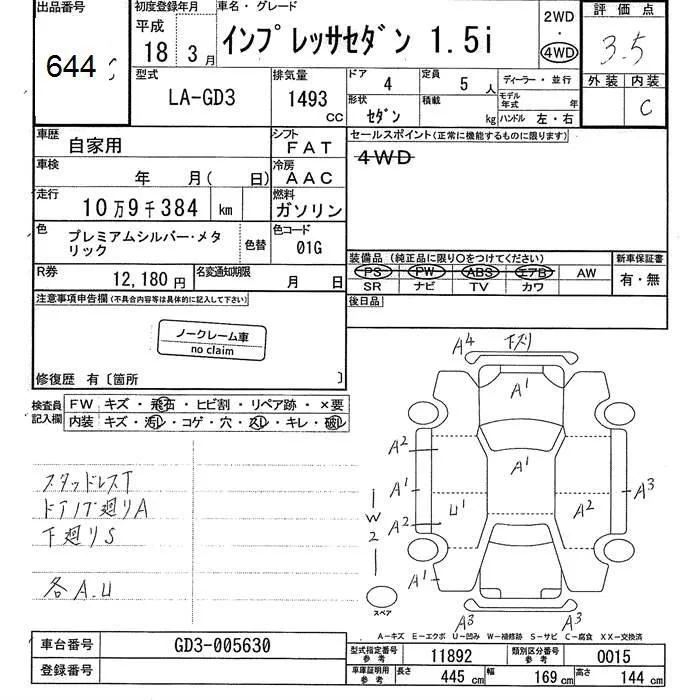 出品番号
644
初度登録年月
平成
18年 3月
車名・グレード
インプレッサセダン 1.5i
2WD
・
4WD
評価点
3.5
外装 内装
C
型式
LA-GD3
排気量
1493
CC
ドア
4
定員
5人
ディーラー・並行
形状
セダン
積載
kg
モデル
年式
年
ハンドル 左・右
車歴
自家用
シフト
FAT
セールスポイント(正常に機能するものに限ります)
4WD
車検
年 月( 日)
冷房
AAC
走行
10万9千384 km
燃料
ガソリン
色
プレミアムシルバー・メタ
リック
色替
色コード
01G
装備品(純正品に限り○をつけてください)
新車保証書
PS PW ABS エアB AW
SR ナビ TV カワ
有・無
R券
12,180円
名変通知期限
月 日
後日品
注意事項申告欄(不具合内容等は具体的に記入して下さい)
ノークレーム車
no claim
修復歴 有〔箇所 〕
検査員
記入欄
FW キズ・飛石・ヒビ割・リペア跡・×要
内装 キズ・汚レ・コゲ・穴・スレ・キレ・破レ
スタッドレスT
ドアノブ廻りA
下廻りS
各A.U
A4
下スリ
A1
A2
A1
A1
A2
A3
U1
A2
A1
A3
A3
W2
スペア
A-キズ E-エクボ U-凹み W-補修跡 S-サビ C-腐食 XX-交換済
車台番号
GD3-005630
登録番号
型式指定番号
参考
11892
類別区分番号
参考
0015
車庫証明用
参考
長さ
445 cm
幅
169 cm
高さ
144 cm